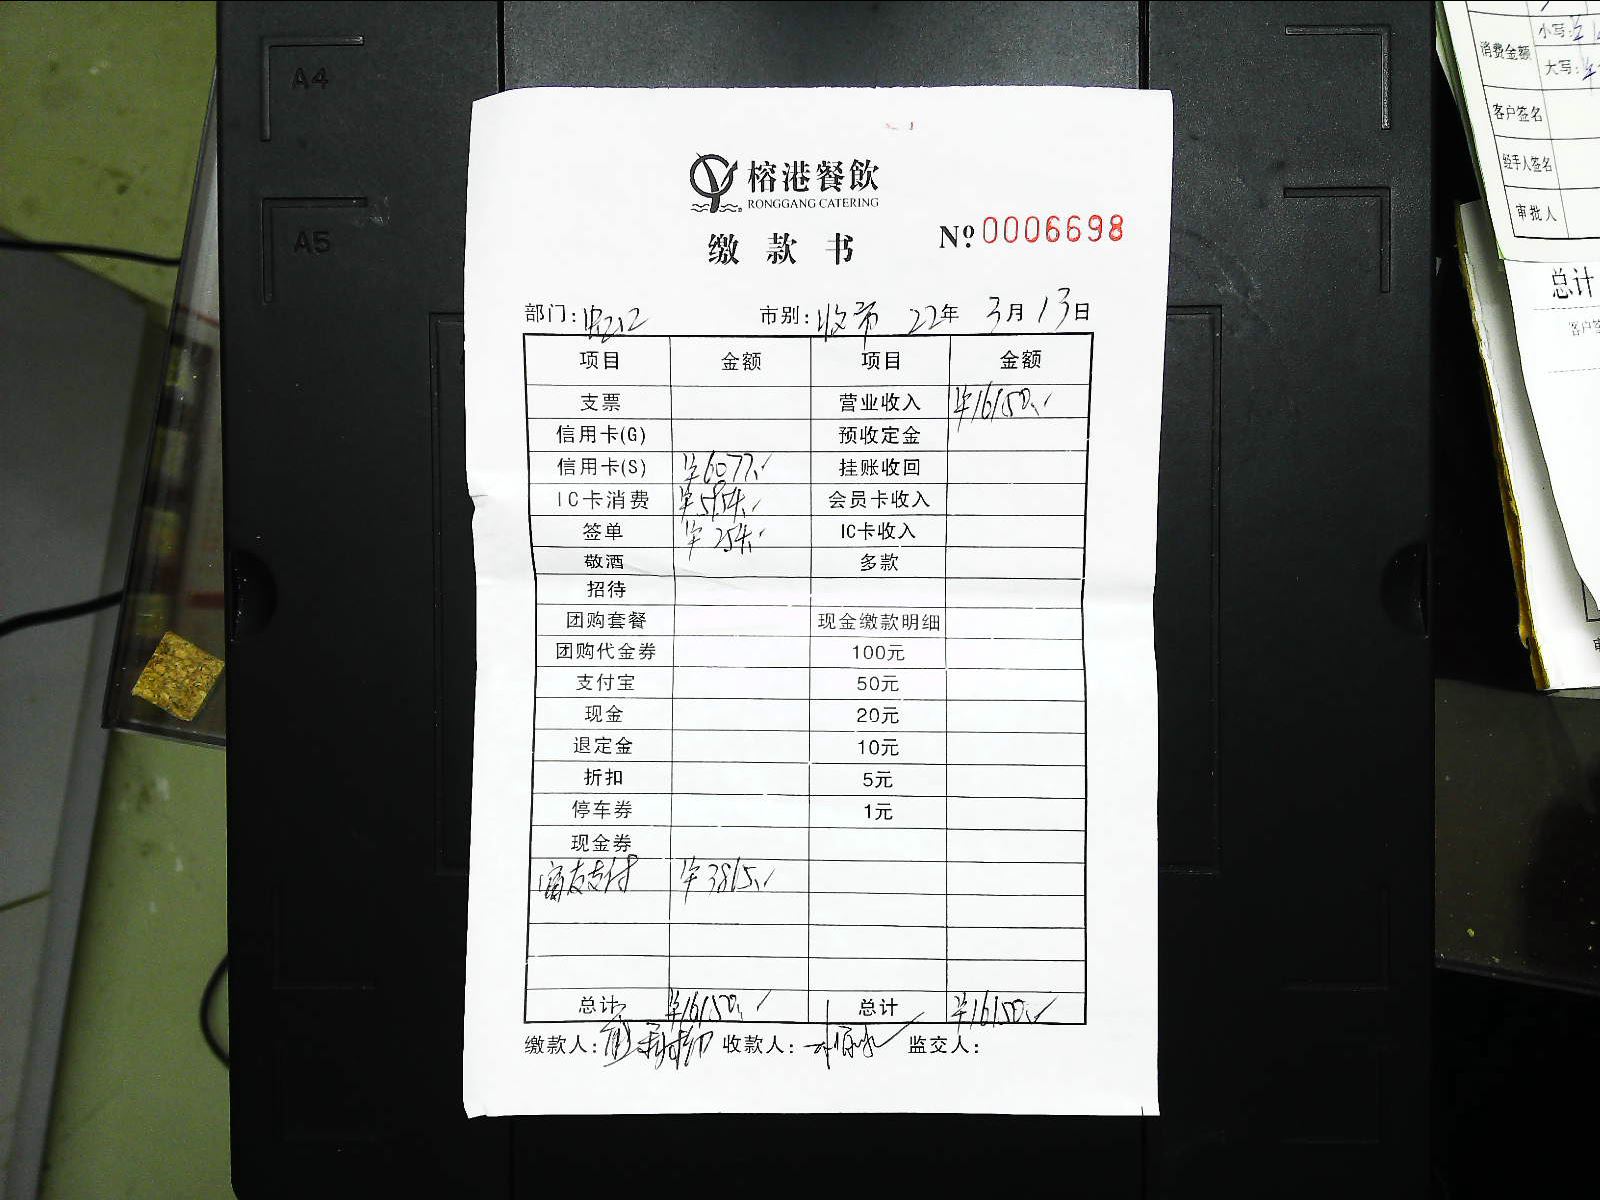 A4
A5
榕港餐飲
RONGGANG CATERING
缴款书
Nº 0006698
部门: 市别: 收市 22年 3月13日
项目 金额 项目 金额
支票 营业收入 ¥16150.
信用卡(G) 预收定金
信用卡(S) ¥6077. 挂账收回
IC卡消费 ¥5954. 会员卡收入
签单 ¥254. IC卡收入
敬酒 多款
招待
团购套餐 现金缴款明细
团购代金券 100元
支付宝 50元
现金 20元
退定金 10元
折扣 5元
停车券 1元
现金券
富友支付 ¥3865.
总计 ¥16150. 总计 ¥16150.
缴款人: 收款人: 监交人:
消费金额
小写:
大写:
客户签名
经手人签名
审批人
总计